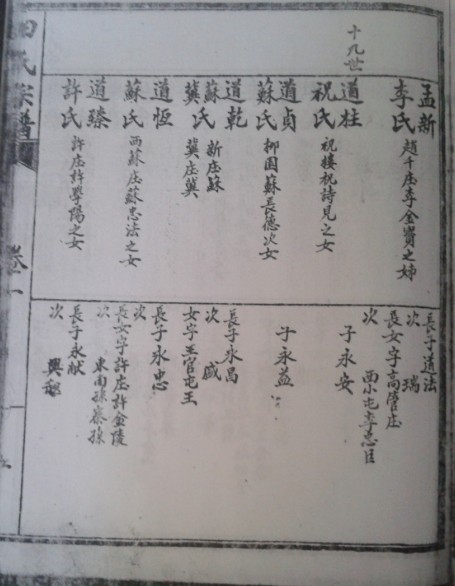 十九世
孟新
李氏 趙千庄李金賓之姊
道柱
祝氏 祝樓祝詩兄之女
道貞
蘇氏 柳園蘇長德次女
道乾
蘇氏 新庄蘇
冀氏 冀庄冀
道恆
蘇氏 西蘇庄蘇忠法之女
道臻
許氏 許庄許學陽之女
長子道法
次 瑞
長女字高營庄
次 西小屯李志臣
子永安
子永益
長子永昌
次
女字王官屯王
長子永忠
次
長女字許庄許金陵
次 東南孫寨孫
長子永獻
次 興
氏宗譜
卷一